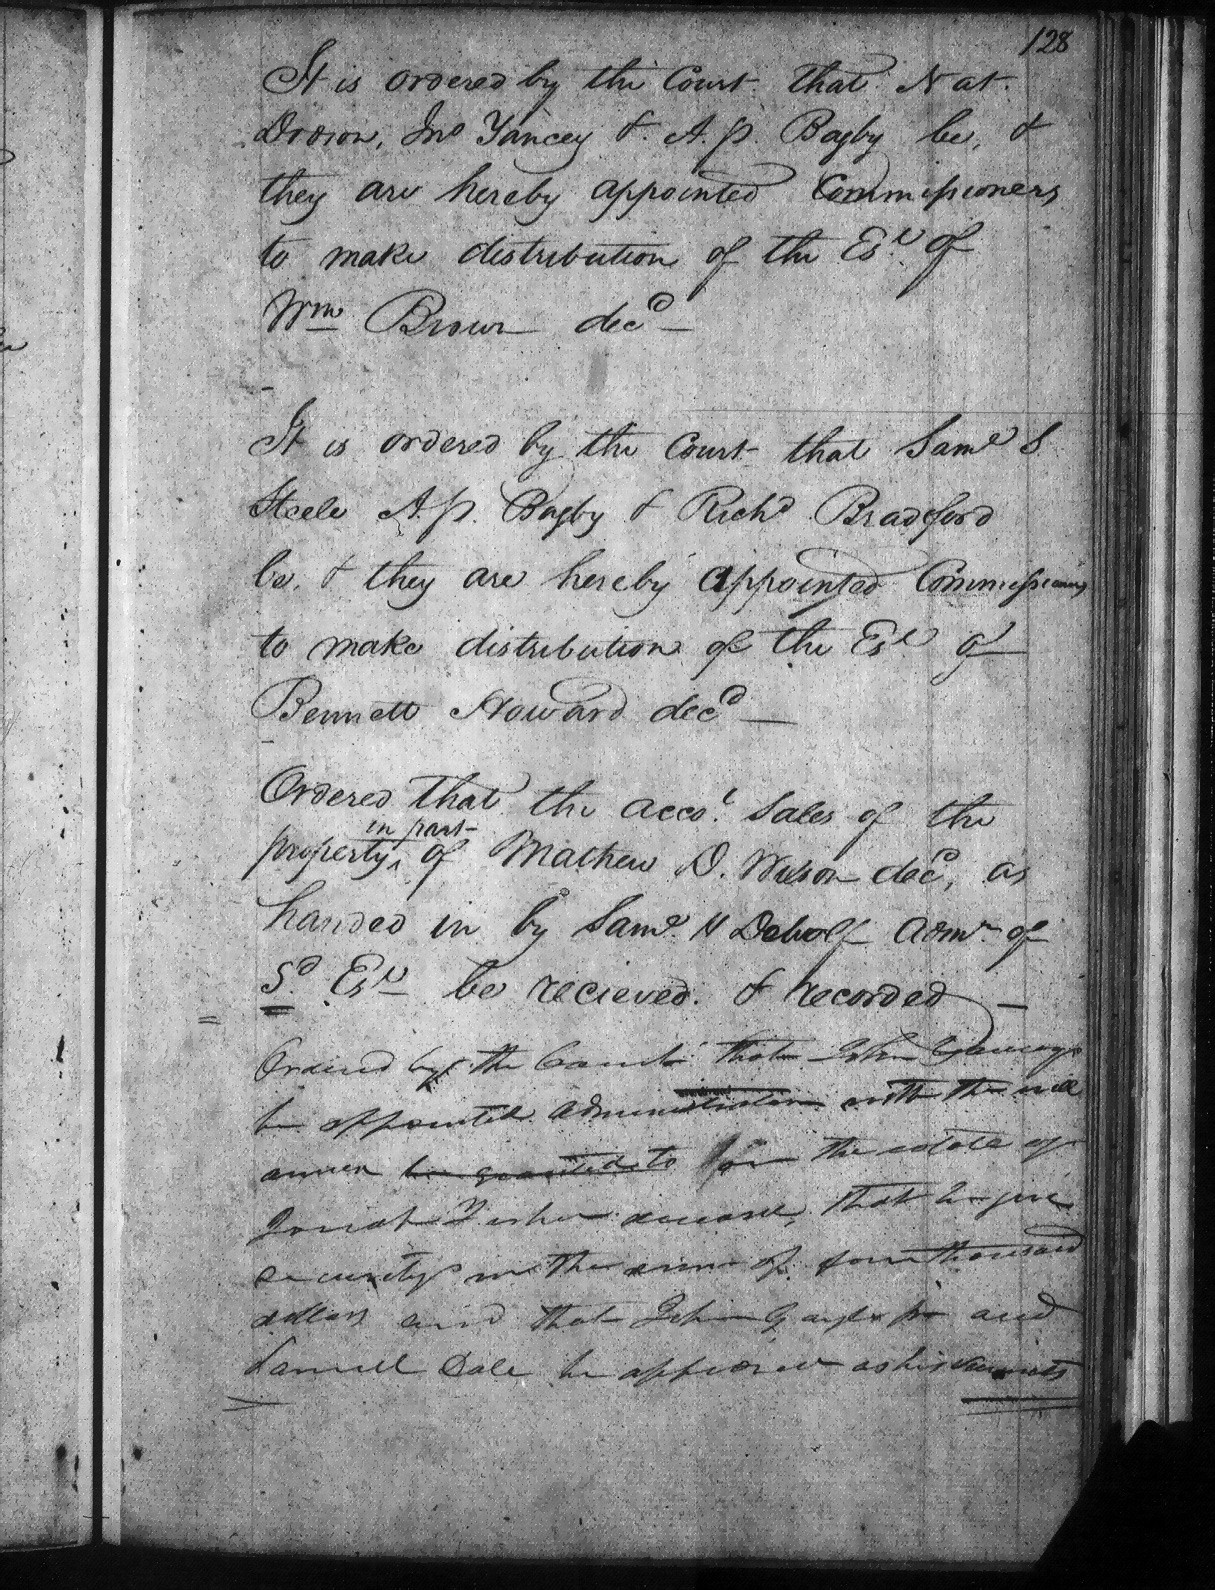 128
It is ordered by the Court that Nat.
Dodson, Jno Yancey & A. P. Bagby be, &
they are hereby appointed Commissioners
to make distribution of the Est. of
Wm Brown decd —
It is ordered by the Court that Saml S
Steele A. P. Bagby & Richd Bradford
be, & they are hereby appointed Commissioners
to make distribution of the Est of
Bennett Howard decd —
Ordered that the acco.t Sales of the
in part
property, of Mathew D. Wilson decd, as
handed in by Saml. H Dewolf Admr of
Sd. Est be recieved. & recorded —
Ordered by the Court that John
be appointed Administrator with the will
annex be granted to for the estate of
deceased, that he give
security in the sum of four thousand
dollars and that John Gayle and
Samuel Dale be approved as his